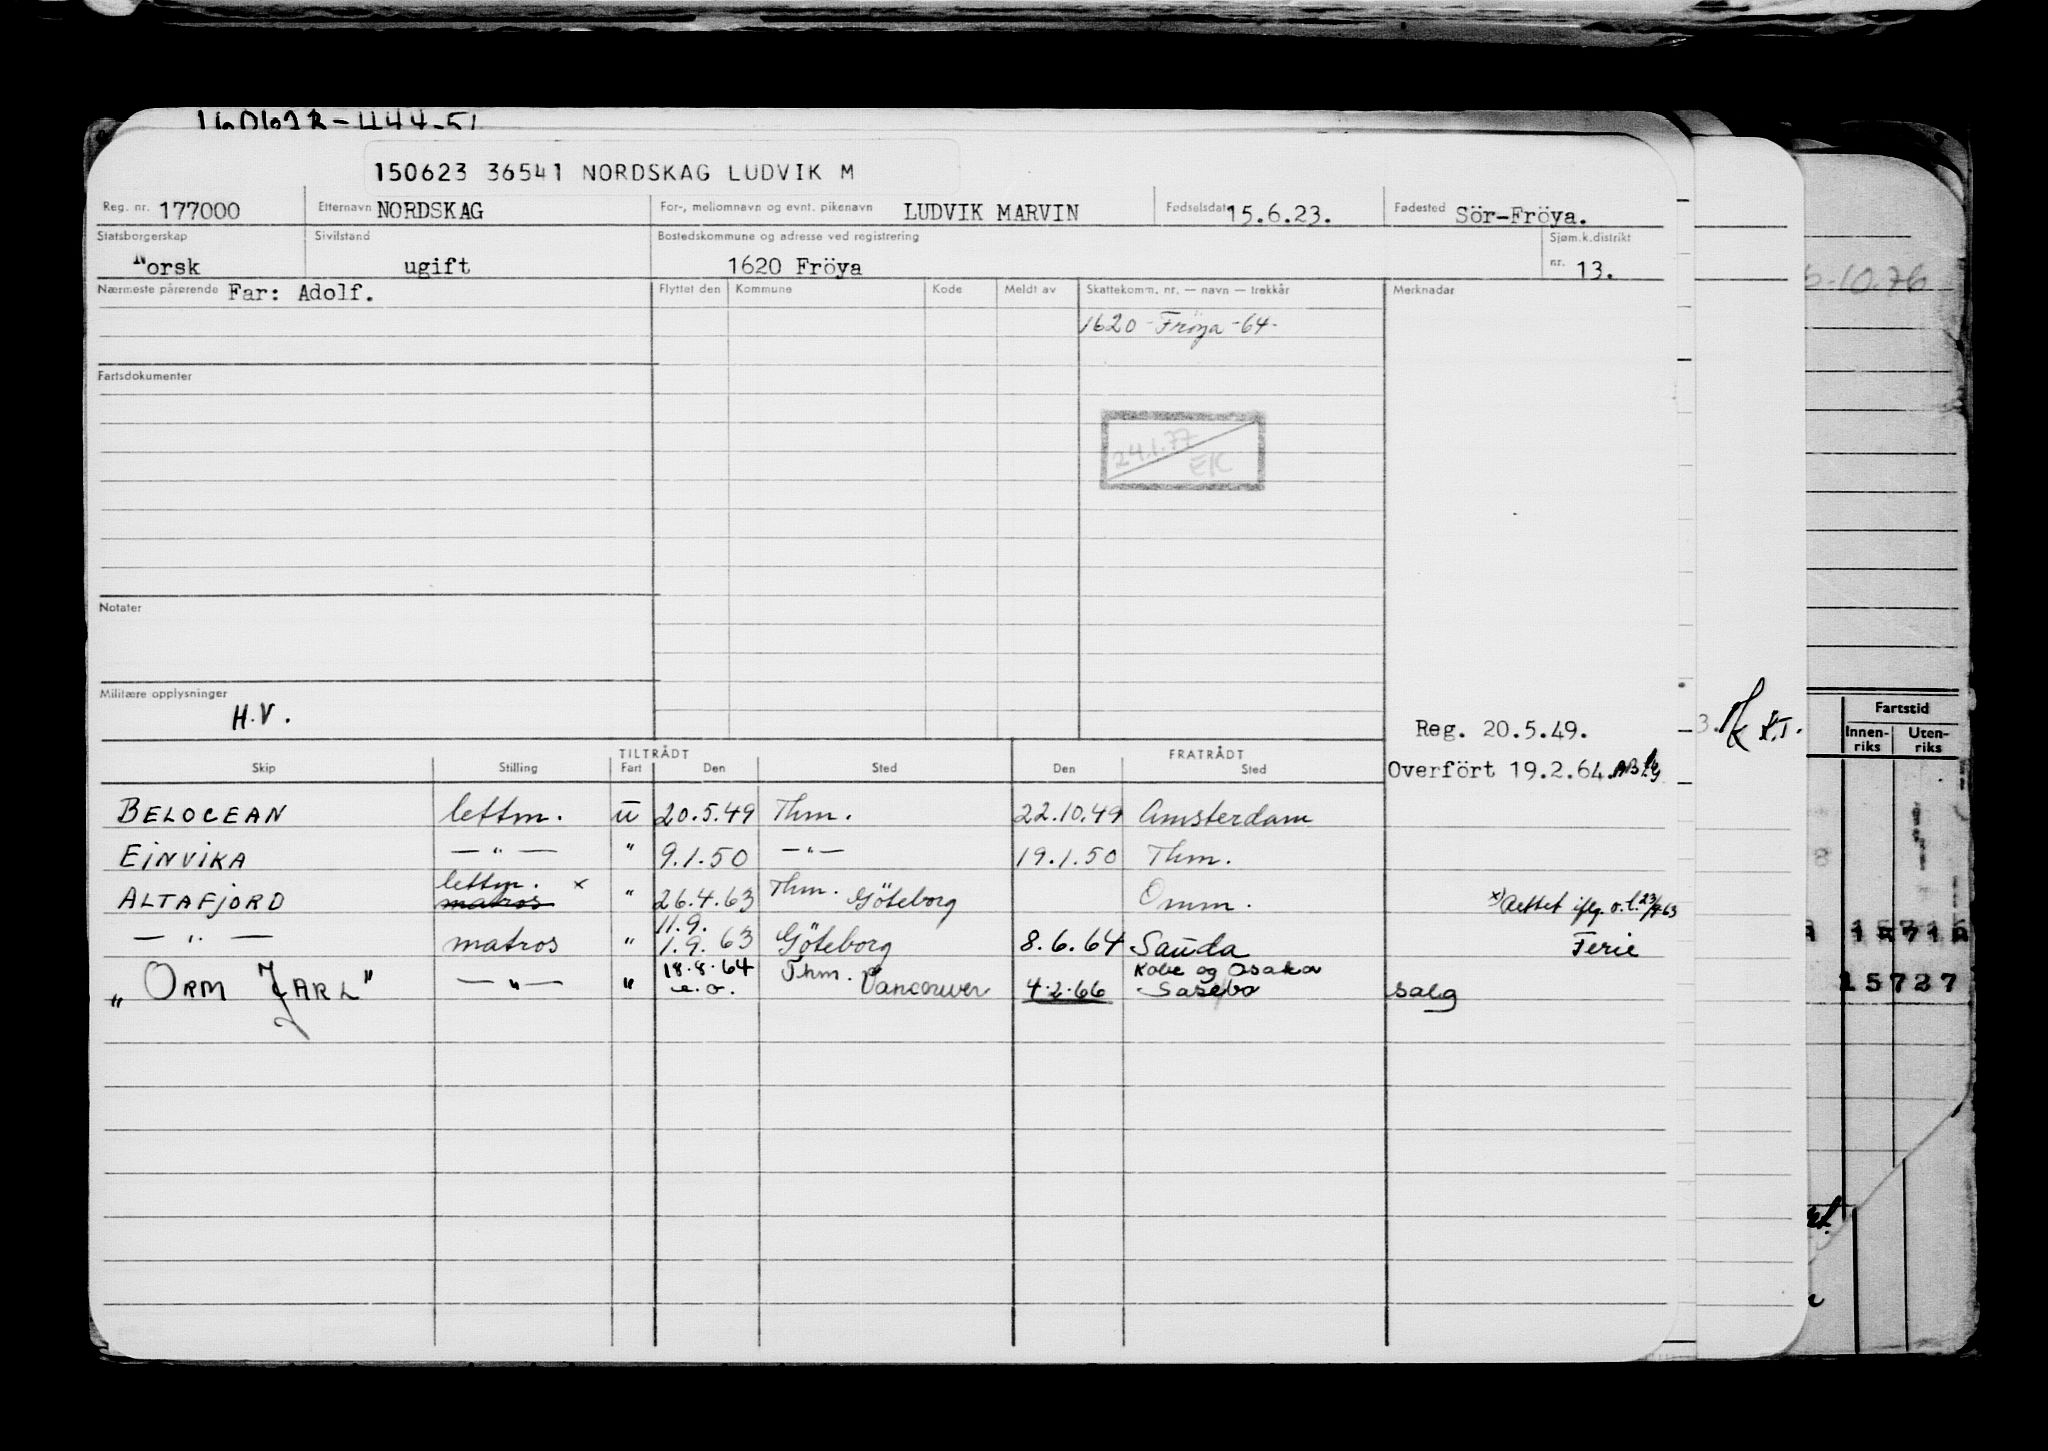 150623 36541 NORDSKAG LUDVIK M
Reg. nr. 177000 Etternavn NORDSKAG For-, mellomnavn og evnt. pikenavn LUDVIK MARVIN Fødselsdato 15.6.23. Fødested Sör-Fröya.
Statsborgerskap Sivilstand Bostedskommune og adresse ved registrering Sjøm.k.distrikt
Norsk ugift 1620 Fröya nr. 13.
Nærmeste pårørende Far: Adolf. Flyttet den Kommune Kode Meldt av Skattekomm. nr. — navn — trekkår Merknadar
1620 - Frøya - 64 -
6.10.76
Fartsdokumenter
24.1.77
EK
Notater
Militære opplysninger
H.V.
Reg. 20.5.49.
Overfört 19.2.64.
Fartstid
Innen-riks Uten-riks
TILTRÅDT FRATRÅDT
Skip Stilling Fart Den Sted Den Sted
BELOCEAN lettm. u 20.5.49 Thm. 22.10.49 Amsterdam
EINVIKA — " — " 9.1.50 — " — 19.1.50 Thm.
ALTAFJORD lettm. x matros " 26.4.63 Thm. Göteborg Omm. x) Rettet iflg. o.l. 23/4-63
— " — matros " 11.9. 1.9.63 Göteborg 8.6.64 Sauda Ferie
"ORM JARL" — " — " 18.8.64 e.o. Thm. Vancouver 4.2.66 Kobe og Osaka Sasebo salg
15727